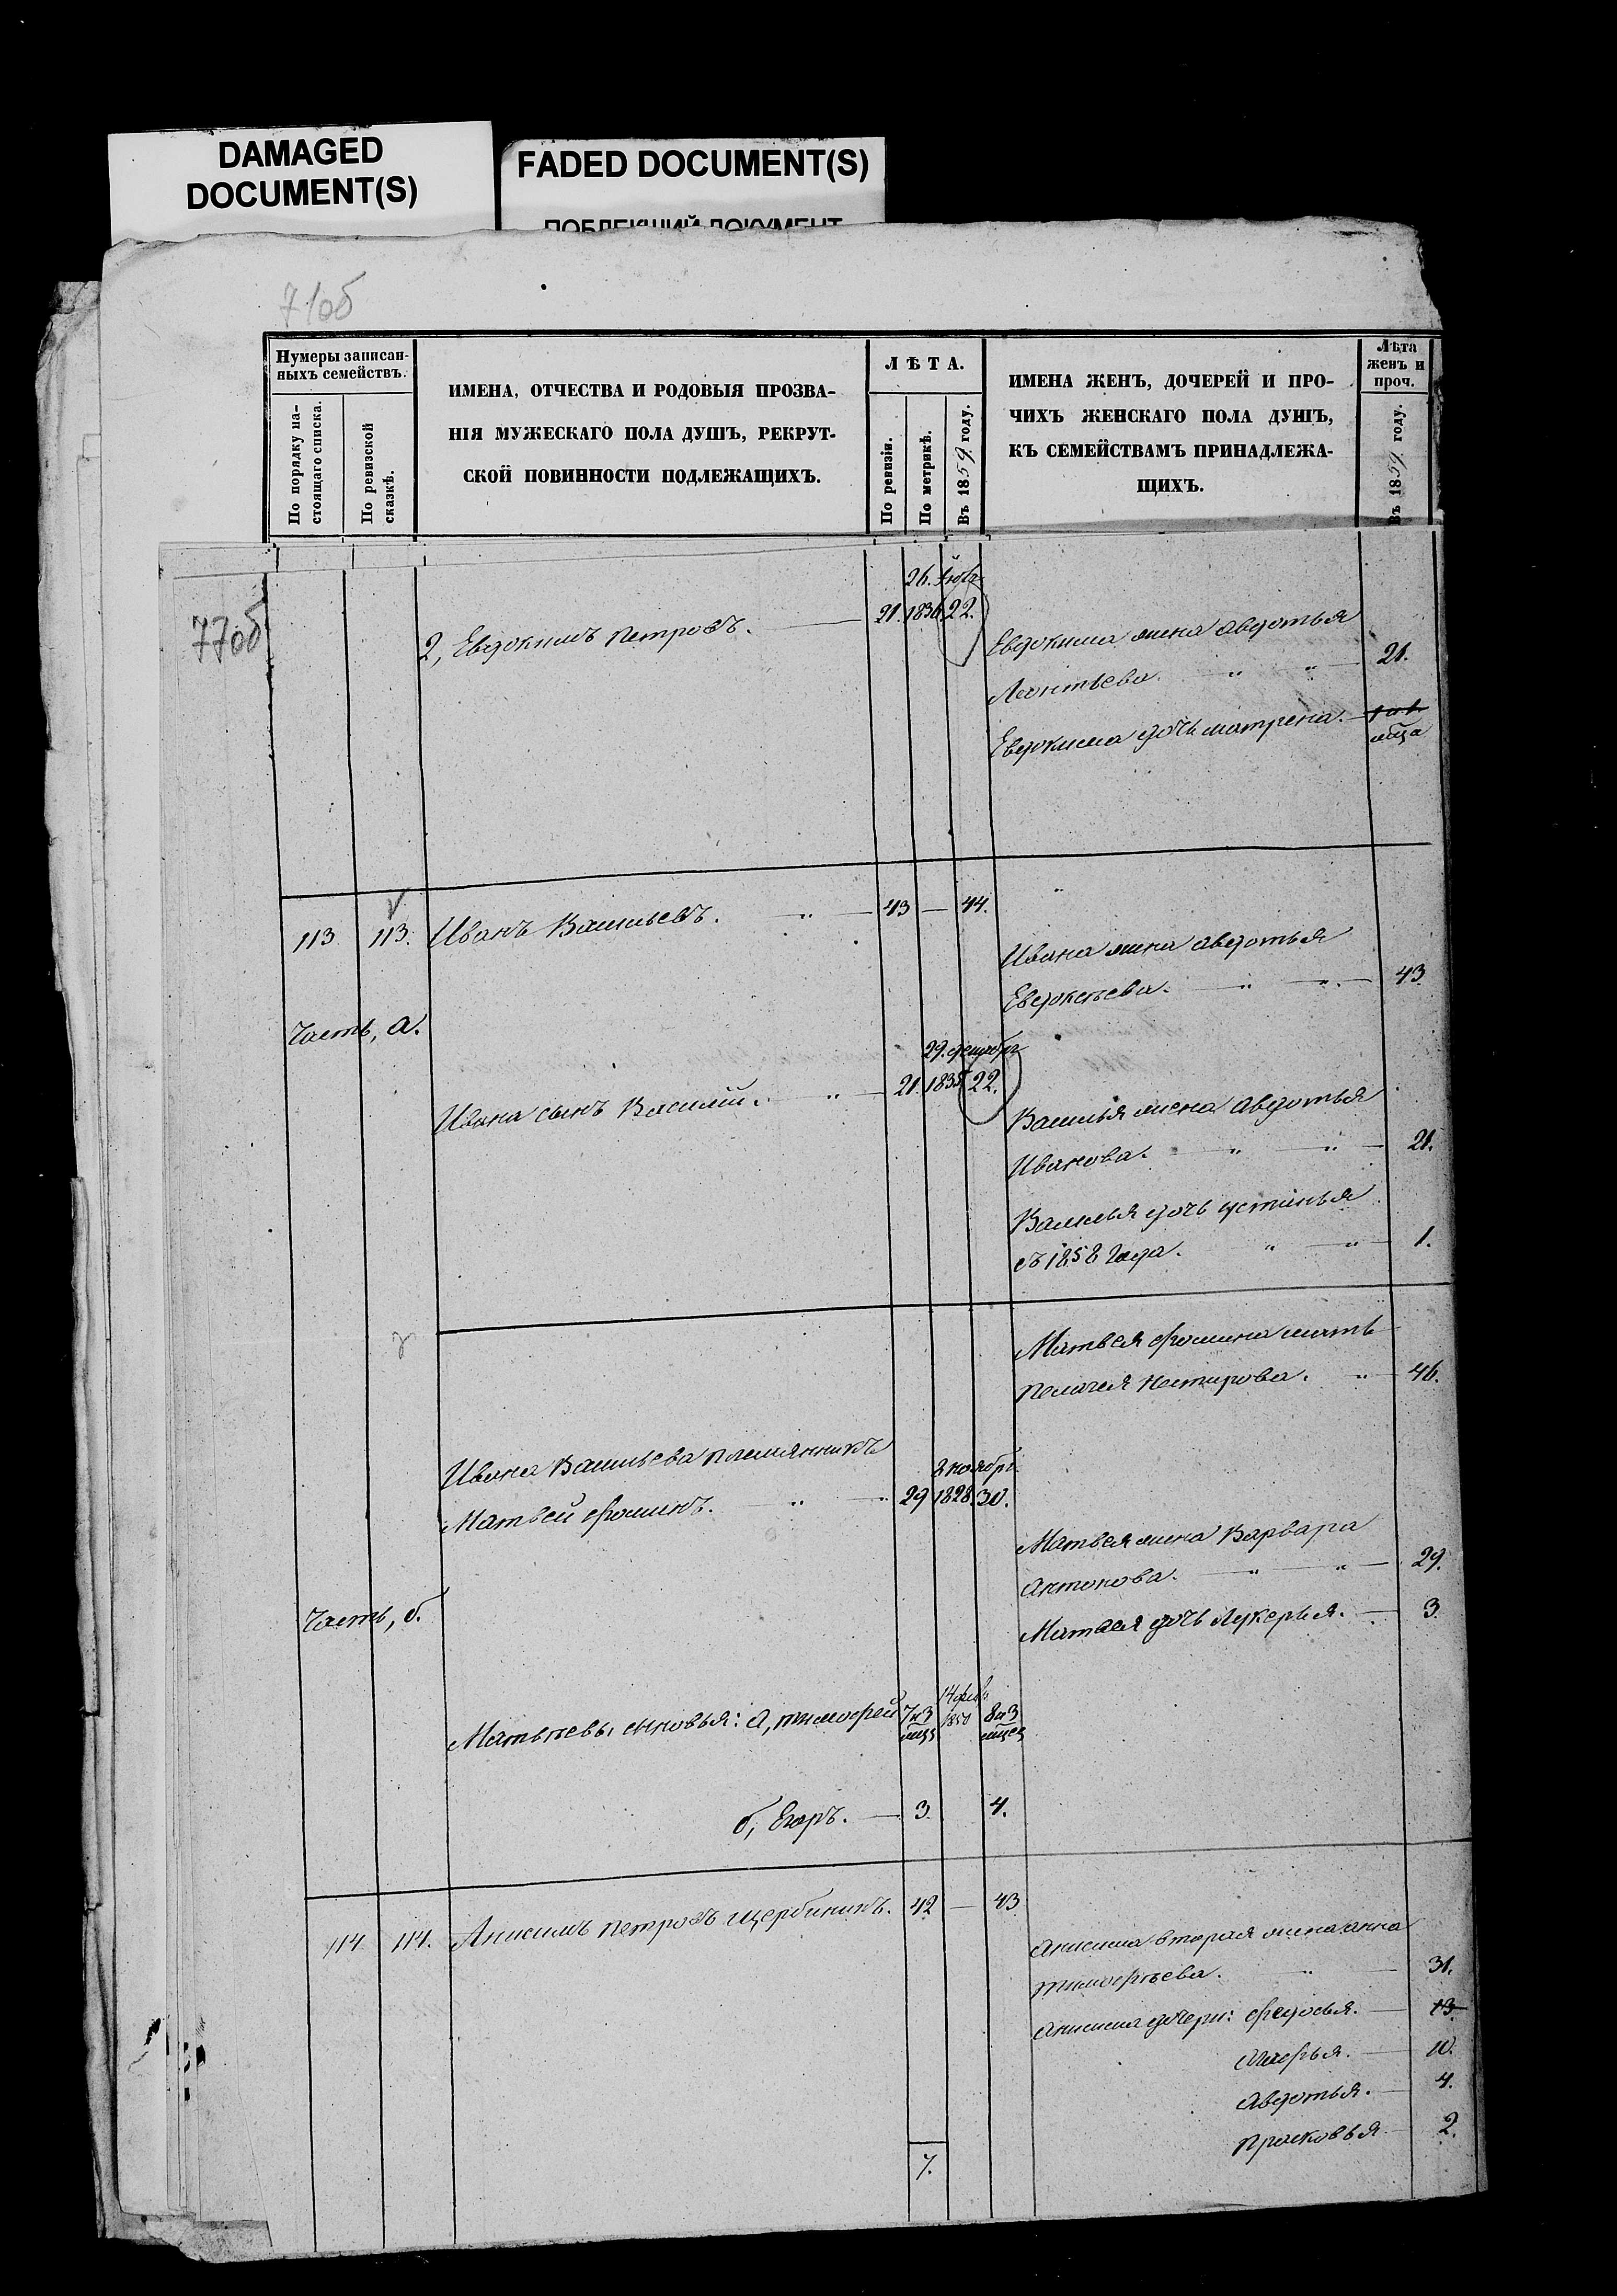 DAMAGED
DOCUMENT(S)
FADED DOCUMENT(S)
ПОБЛЕКШИЙ ДОКУМЕНТ
71об
Нумеры записан-
ныхъ семействъ.
По порядку на-
стоящаго списка.
По ревизской
сказкѣ.
ИМЕНА, ОТЧЕСТВА И РОДОВЫЯ ПРОЗВА-
НІЯ МУЖЕСКАГО ПОЛА ДУШЪ, РЕКРУТ-
СКОЙ ПОВИННОСТИ ПОДЛЕЖАЩИХЪ.
ЛѢТА.
По ревизіи.
По метрикѣ.
Въ 1859 году.
ИМЕНА ЖЕНЪ, ДОЧЕРЕЙ И ПРО-
ЧИХЪ ЖЕНСКАГО ПОЛА ДУШЪ,
КЪ СЕМЕЙСТВАМЪ ПРИНАДЛЕЖА-
ЩИХЪ.
Лѣта
женъ и
проч.
Въ 1859 году.
77об
26.
2, Евдокимъ Петровъ. 21. 1836. 22.
Евдокима жена Авдотья
Леонтьева. 21.
Евдокима дочь Матрена.
мѣца
113. 113. Иванъ Васильевъ. 43 — 44.
Ивана жена Авдотья
43
Часть, а.
29. декабр
Ивана сынъ Василій. 21. 1835 22.
Василья жена Авдотья
Иванова. 21.
Василья дочь Устинья
съ 1858 года. 1.
Матвея Фомина мать
Пелагея Нестирова. 46.
Ивана Васильева племянникъ
2 ноябр.
Матвей Фоминъ. 29 1828. 30.
Матвея жена Варвара
Антонова. 29.
Часть, б.
Матвея дочь Лукерья. 3.
14 фев.
Матвѣевы сыновья: а, Тимофей 7 и 3 1850 8 и 3
б, Егоръ. 3. 4.
114. 114. Анисимъ Петровъ Щербининъ. 42 — 43
Анисима вторая жена Анна
Тимофѣева. 31.
Анисима дочери: Федосья. 13.
Марья. 10.
Авдотья. 4.
Прасковья 2.
7.